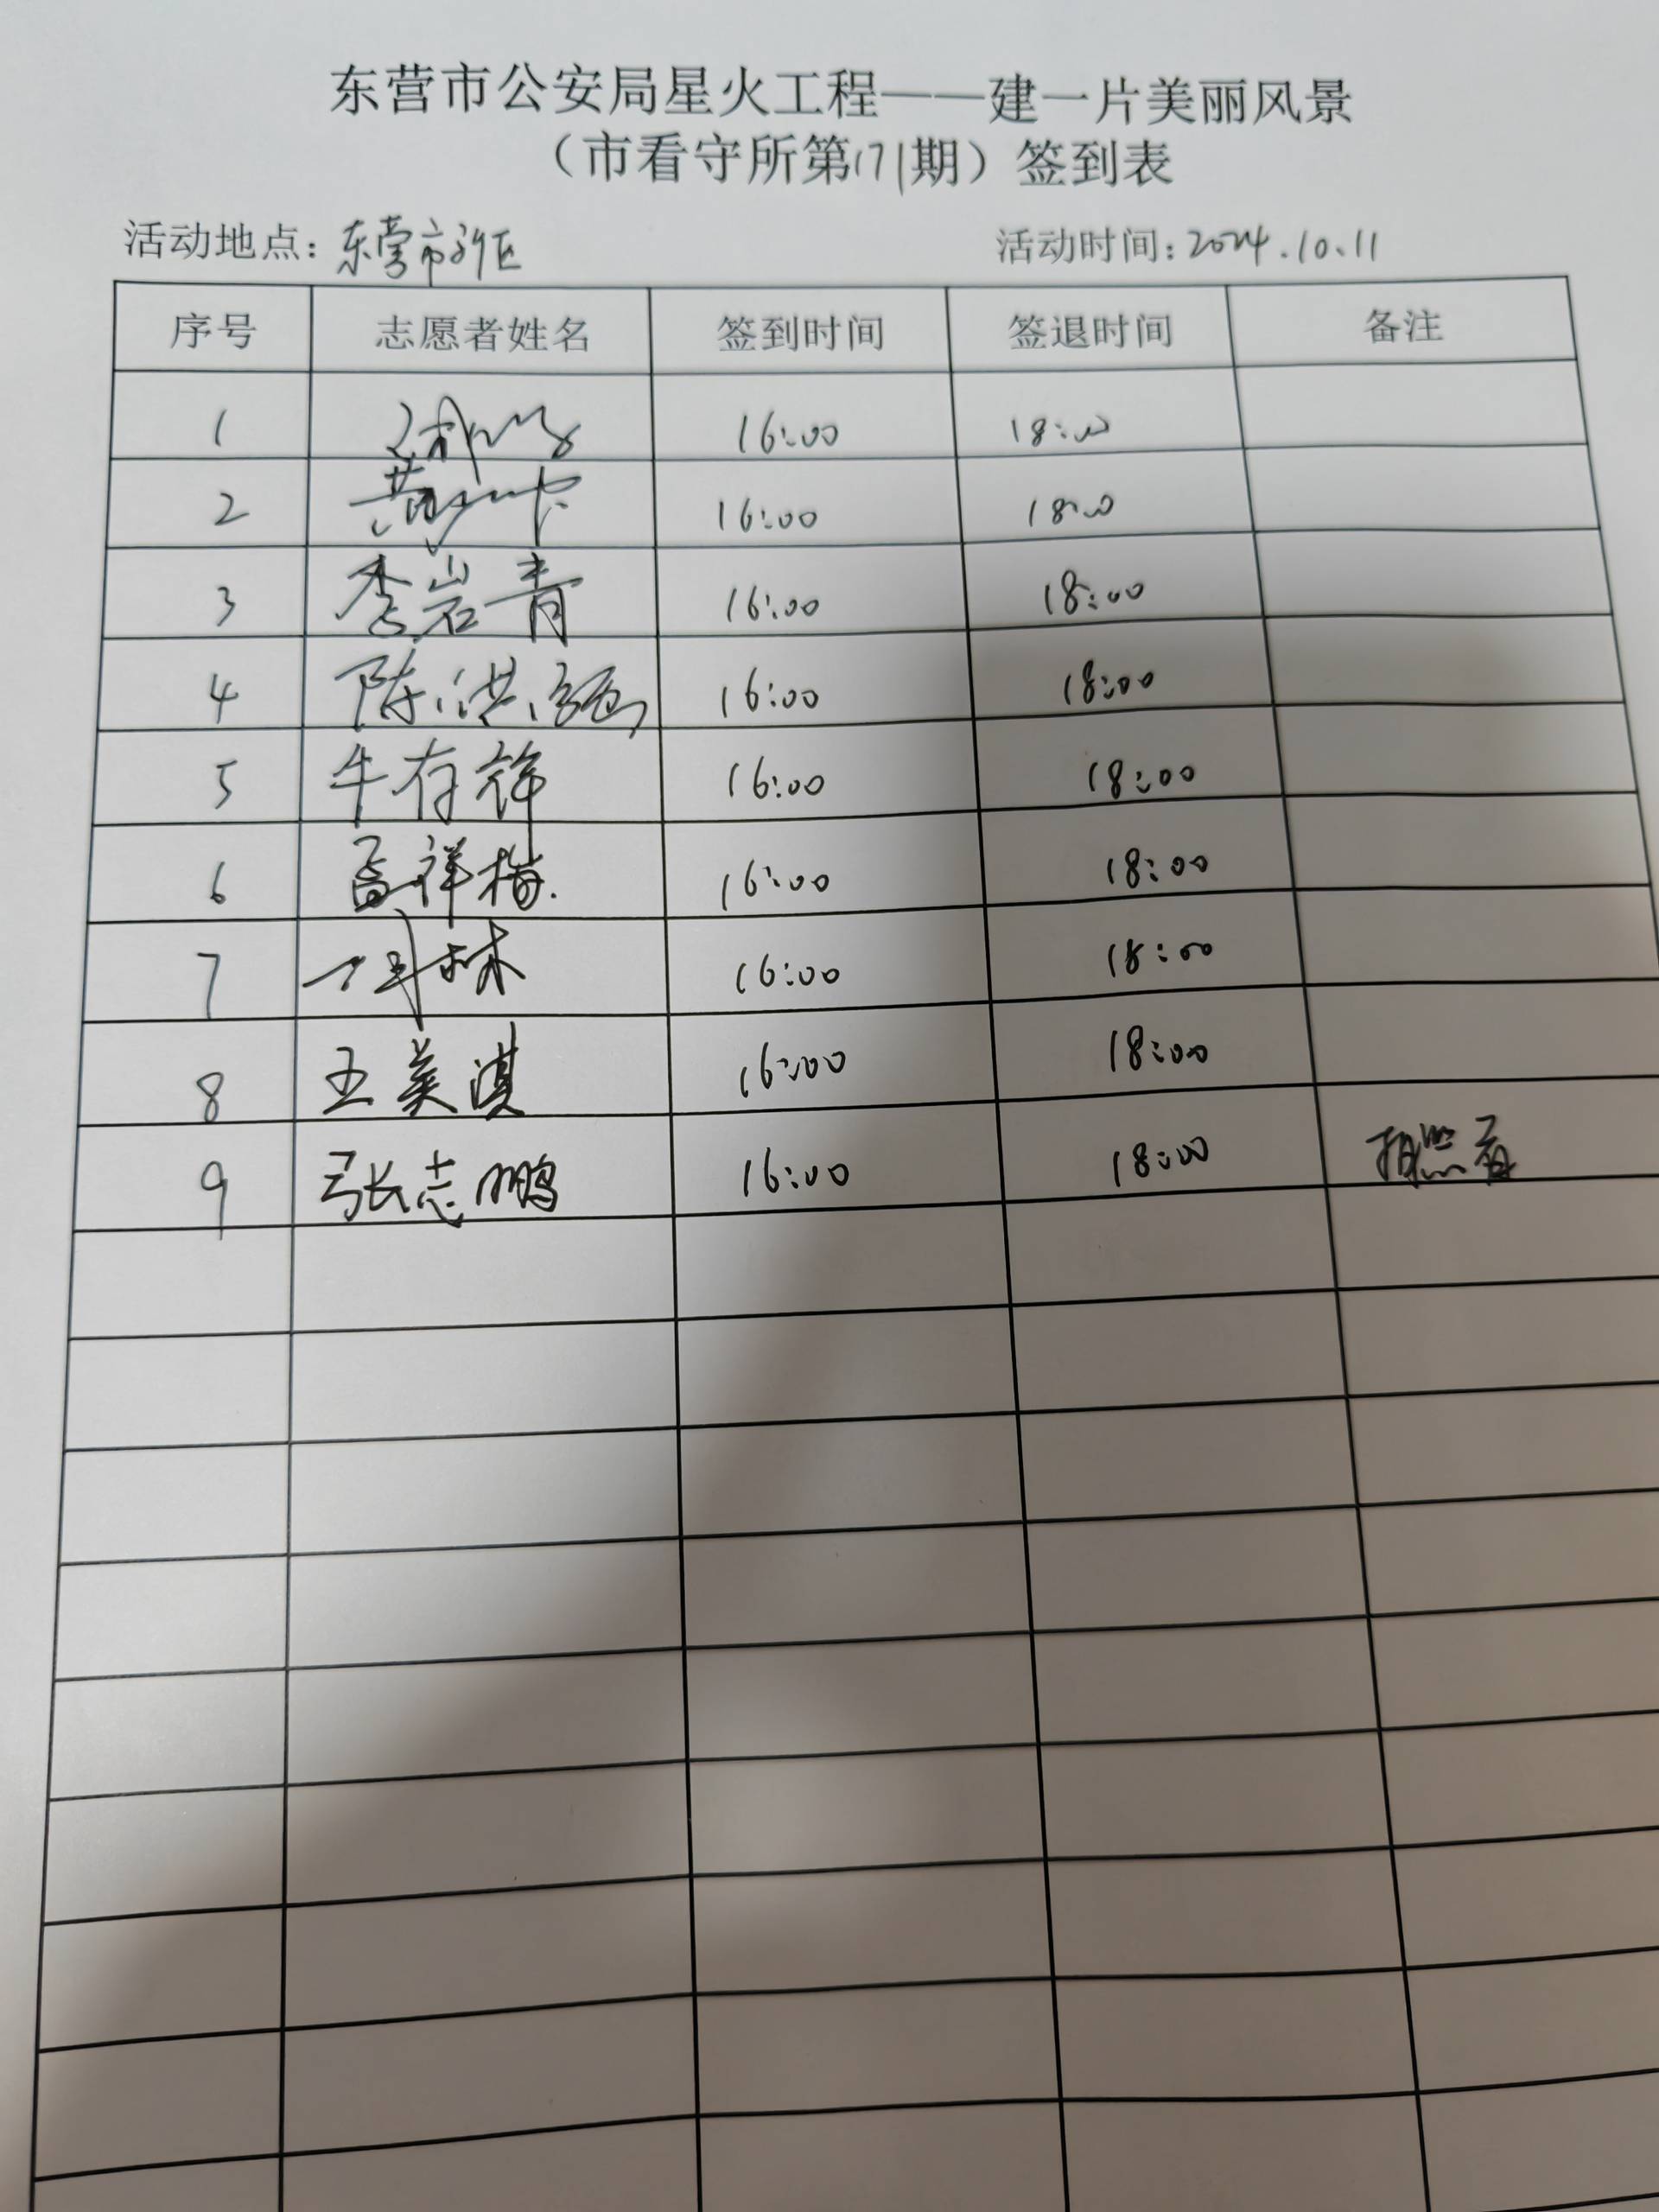 东营市公安局星火工程——建一片美丽风景
（市看守所第171期）签到表
活动地点：东营市 活动时间：2024.10.11
序号 志愿者姓名 签到时间 签退时间 备注
1 16:00 18:00
2 16:00 18:00
3 李岩青 16:00 18:00
4 陈洪 16:00 18:00
5 牛存祥 16:00 18:00
6 孟祥梅 16:00 18:00
7 林 16:00 18:00
8 王美淇 16:00 18:00
9 张志鹏 16:00 18:00 拍照者